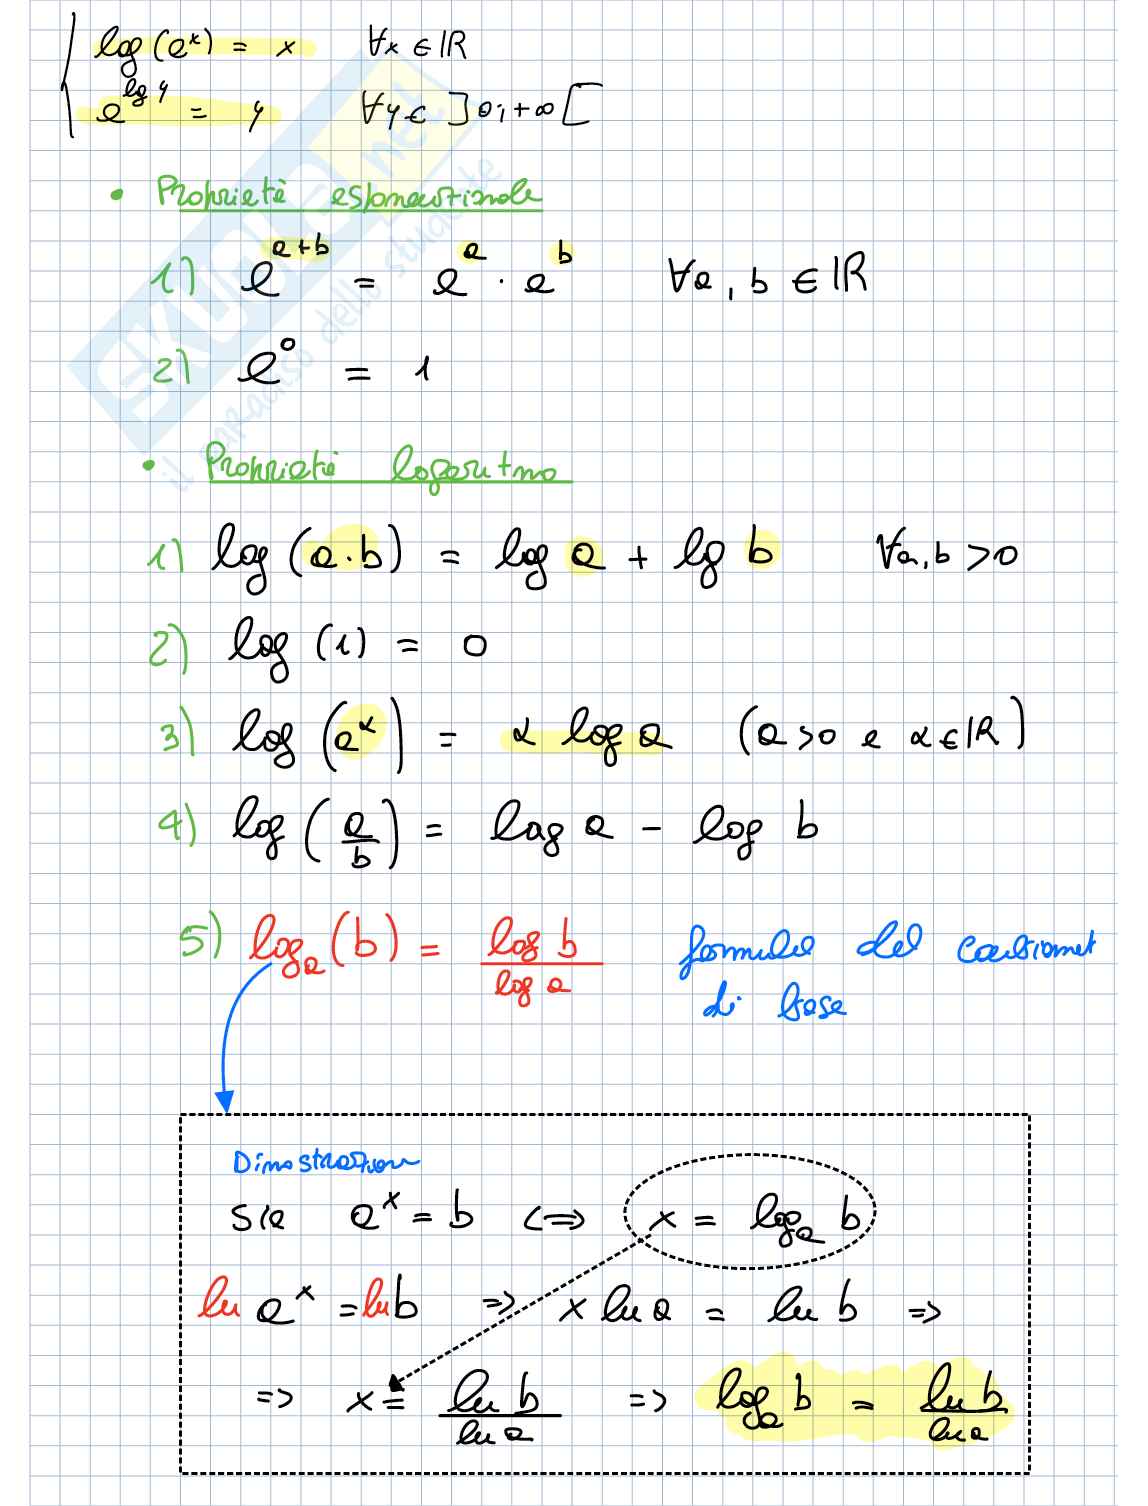 log(e^x) = x ∀x ∈ ℝ
e^{log y} = y ∀y ∈ ]0; +∞[
• Proprietà esponenziale
1) e^{a+b} = e^a · e^b ∀a, b ∈ ℝ
2) e^0 = 1
• Proprietà logaritmo
1) log (a·b) = log a + lg b ∀a, b > 0
2) log (1) = 0
3) log (a^α) = α log a (a>0 e α∈ℝ)
4) log (a/b) = log a − log b
5) log_a (b) = log b / log a formula del
di base
Dimostrazione
Sia a^x = b ⟺ x = log_a b
ln a^x = ln b ⟹ x ln a = ln b ⟹
⟹ x = ln b / ln a ⟹ log_a b = ln b / ln a
SKUOLA.net
il paradiso dello studente